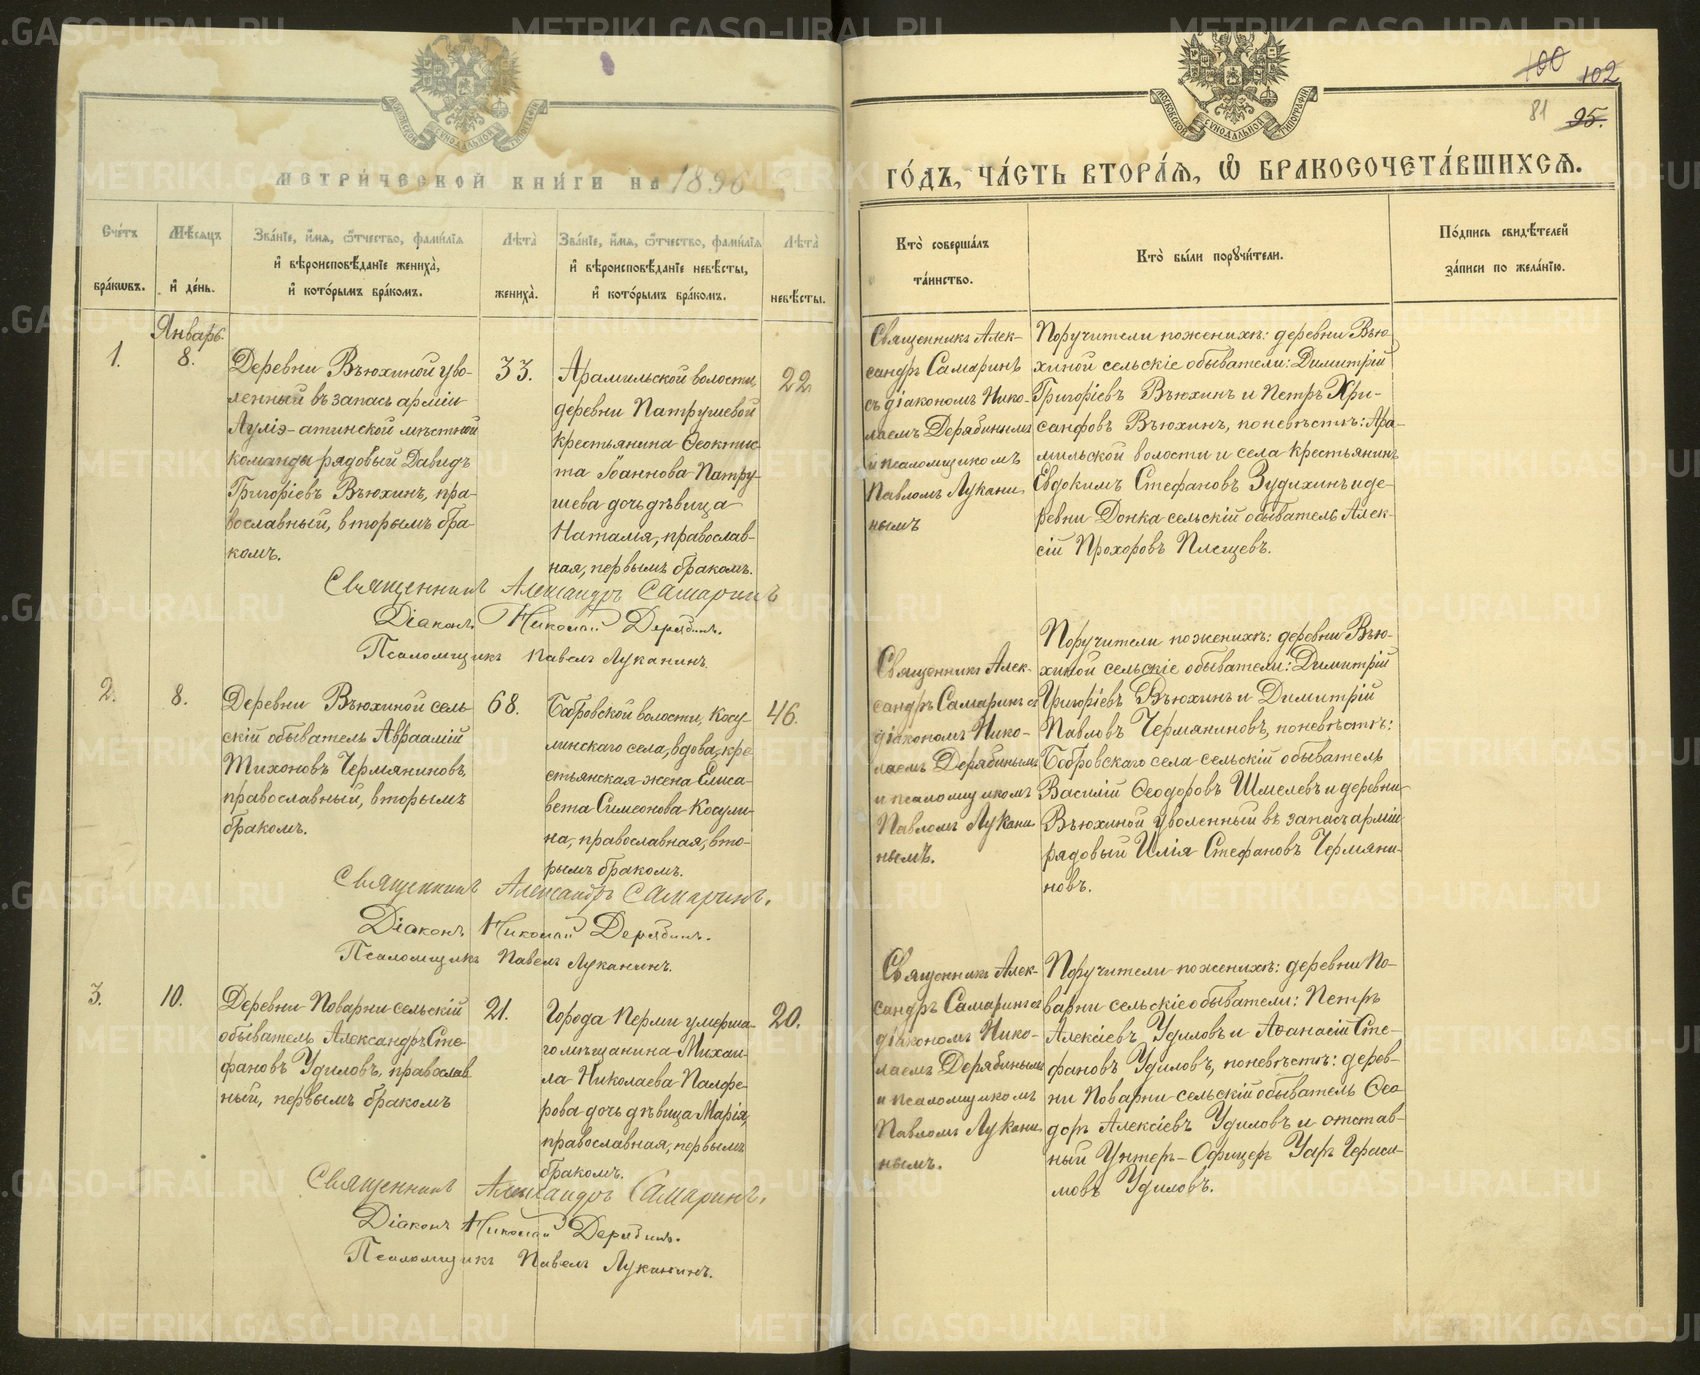 МЕТРИ́ЧЕСКОЙ КНИ́ГИ НА 1896
Сче́тъ бра́кѡвъ.
Мѣ́сяцъ и҆ де́нь.
Зва́нїе, и҆́мѧ, ѻ҆́тчество, фами́лїѧ
и҆ вѣроисповѣ́данїе жениха̀,
и҆ кото́рымъ бра́комъ.
Лѣ̀та
жениха̀.
Зва́нїе, и҆́мѧ, ѻ҆́тчество, фами́лїѧ
и҆ вѣроисповѣ́данїе невѣ́сты,
и҆ кото́рымъ бра́комъ.
Лѣ̀та
невѣ́сты.
Январь.
1.
8.
Деревни Вьюхиной уво-
ленный въ запасъ арміи
Ауліэ-атинской мѣстной
команды рядовый Давидъ
Григоріевъ Вьюхинъ, пра-
вославный, вторымъ бра-
комъ.
33.
Арамильской волости,
деревни Патрушевой
крестьянина Ѳеоктис-
та Іоаннова Патру-
шева дочь дѣвица
Наталія, православ-
ная, первымъ бракомъ.
22.
Священникъ Александръ Самаринъ
Діаконъ Николай Дерябинъ.
Псаломщикъ Павелъ Луканинъ.
2.
8.
Деревни Вьюхиной сель-
скій обыватель Авраамій
Тихоновъ Чермяниновъ,
православный, вторымъ
бракомъ.
68.
Бобровской волости, Косу-
линскаго села, вдова, кре-
стьянская жена Елиса-
вета Симеонова Косули-
на, православная, вто-
рымъ бракомъ.
46.
Священникъ Александръ Самаринъ.
Діаконъ Николай Дерябинъ.
Псаломщикъ Павелъ Луканинъ.
3.
10.
Деревни Поварни сельскій
обыватель Александръ Сте-
фановъ Удиловъ, православ-
ный, первымъ бракомъ
21.
Города Перми умерша-
го мѣщанина Михаи-
ла Николаева Палфе-
рова дочь дѣвица Марія,
православная, первымъ
бракомъ.
20.
Священникъ Александръ Самаринъ.
Діаконъ Николай Дерябинъ.
Псаломщикъ Павелъ Луканинъ.
100 102
81 95.
МОСКОВСКОЙ СѴНОДАЛЬНОЙ ТИПОГРАФІИ
ГО́ДЪ, ЧА́СТЬ ВТОРА́Ѧ, Ѡ҆ БРАКОСОЧЕТА́ВШИХСѦ.
Кто̀ соверша́лъ
та́инство.
Кто̀ бы́ли порꙋчи́тели.
По́дпись свидѣ́телей
за́писи по жела́нїю.
Священникъ Алек-
сандръ Самаринъ
съ діакономъ Нико-
лаемъ Дерябинымъ
и псаломщикомъ
Павломъ Лукани-
нымъ
Поручители по женихѣ: деревни Вью-
хиной сельскіе обыватели: Димитрій
Григоріевъ Вьюхинъ и Петръ Хри-
санфовъ Вьюхинъ, по невѣстѣ: Ара-
мильской волости и села крестьянинъ
Евдокимъ Стефановъ Зудихинъ и де-
ревни Донка сельскій обыватель Алек-
сій Прохоровъ Плещевъ.
Священникъ Алек-
сандръ Самаринъ съ
діакономъ Нико-
лаемъ Дерябинымъ
и псаломщикомъ
Павломъ Лукани-
нымъ.
Поручители по женихѣ: деревни Вью-
хиной сельскіе обыватели: Димитрій
Григоріевъ Вьюхинъ и Димитрій
Павловъ Чермяниновъ, по невѣстѣ:
Бобровскаго села сельскій обыватель
Василій Ѳеодоровъ Шмелевъ и деревни
Вьюхиной уволенный въ запасъ арміи
рядовый Илія Стефановъ Чермяни-
новъ.
Священникъ Алек-
сандръ Самаринъ съ
діакономъ Нико-
лаемъ Дерябинымъ
и псаломщикомъ
Павломъ Лукани-
нымъ.
Поручители по женихѣ: деревни По-
варни сельскіе обыватели: Петръ
Алексіевъ Удиловъ и Аѳанасій Сте-
фановъ Удиловъ, по невѣстѣ: дерев-
ни Поварни сельскій обыватель Ѳео-
доръ Алексіевъ Удиловъ и отстав-
ный Унтеръ-Офицеръ Уаръ Гераси-
мовъ Удиловъ.